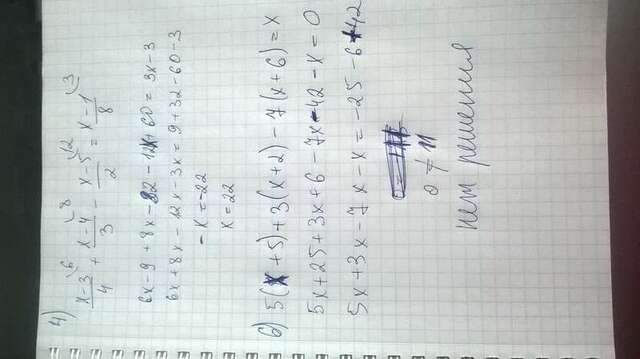 4) x-3/4 + x-4/3 - x-5/2 = x-1/8
6x-9+8x-32-12x+60=3x-3
6x+8x-12x-3x=9+32-60-3
-x=-22
x=22
6) 5(x+5)+3(x+2)-7(x+6)=x
5x+25+3x+6-7x-42-x=0
5x+3x-7x-x=-25-6+42
0≠11
нет решения